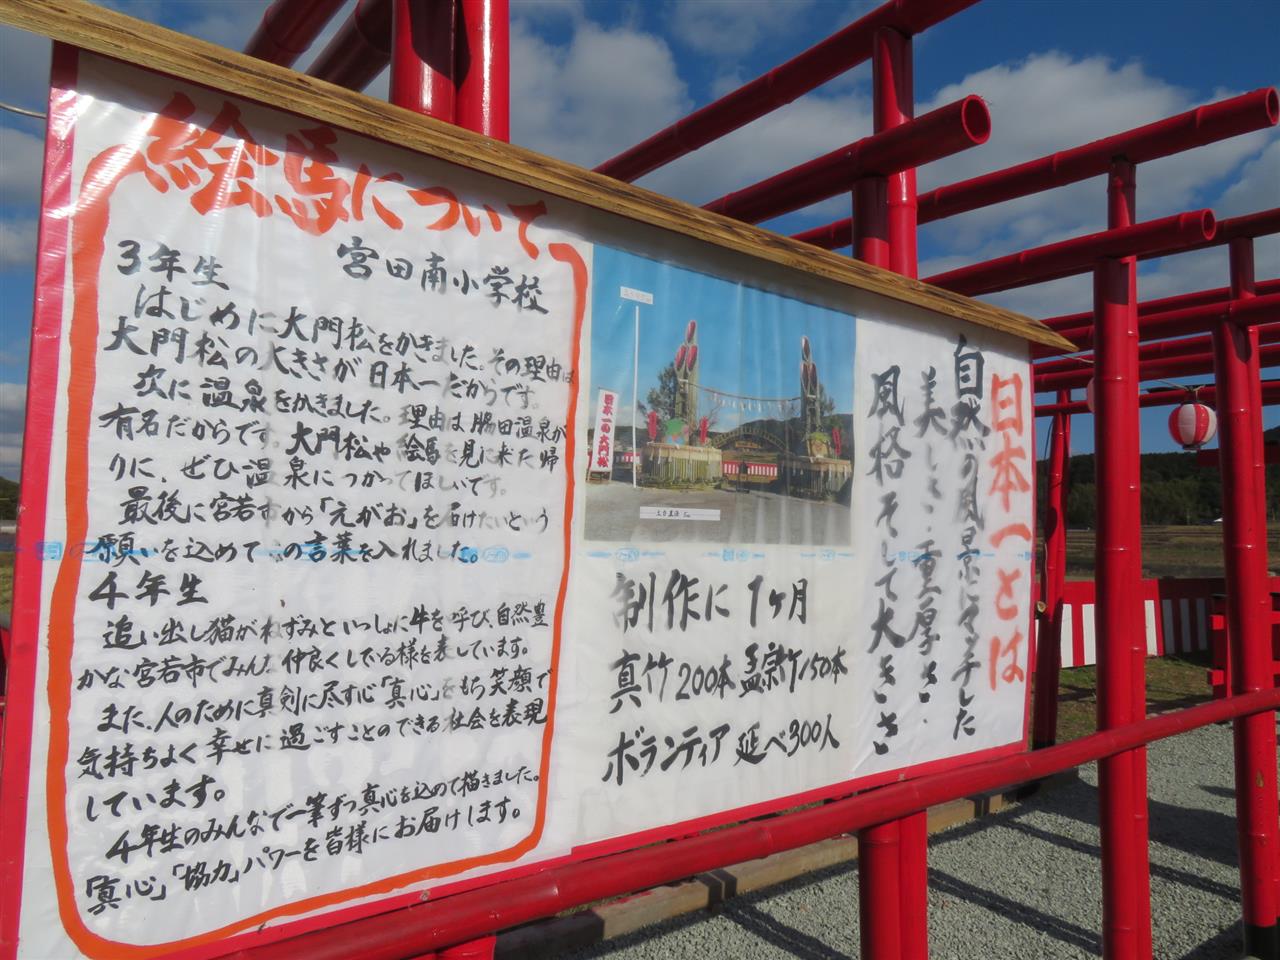 絵馬について
宮田南小学校
3年生
はじめに大門松をかきました。その理由は
大門松の大きさが日本一だからです。
次に温泉をかきました。理由は脇田温泉が
有名だからです。大門松や絵馬を見に来た帰
りに、ぜひ温泉につかってほしいです。
最後に宮若市から「えがお」を届けたいという
願いを込めてこの言葉を入れました。
4年生
追い出し猫がねずみといっしょに牛を呼び、自然豊
かな宮若市でみんな仲良くしている様を表しています。
また、人のために真剣に尽す心「真心」をもち笑顔で
気持ちよく幸せに過ごすことのできる社会を表現
しています。
4年生のみんなで一筆ずつ真心を込めて描きました。
「真心」「協力」パワーを皆様にお届けします。
日本一の大門松
制作に1ヶ月
真竹200本 孟宗竹150本
ボランティア 延べ300人
日本一とは
自然の風景にマッチした
美しさ・重厚さ・
風格そして大きさ